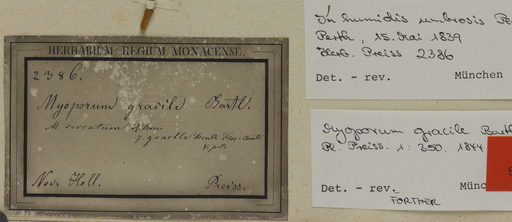 HERBARIUM REGIUM MONACENSE.
2386.
Myoporum gracile Bartl.
M. serratum R. Br.
γ. gracile Benth. Flor. Austr.
V. p. 6
Nov. Holl. Preiss.
In humidis umbrosis Pe
Perth, 15. Mai 1839
Herb. Preiss 2386
Det. - rev. München
Myoporum gracile Bartl
Pl. Preiss. 1. 350. 1844
Det. - rev. Münc
FORTHER